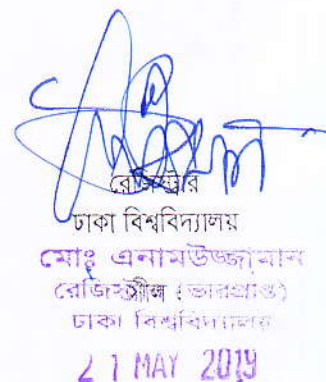 রেজিস্ট্রার
ঢাকা বিশ্ববিদ্যালয়
মোঃ এনামউজ্জামান
রেজিস্ট্রার (ভারপ্রাপ্ত)
ঢাকা বিশ্ববিদ্যালয়
21 MAY 2019